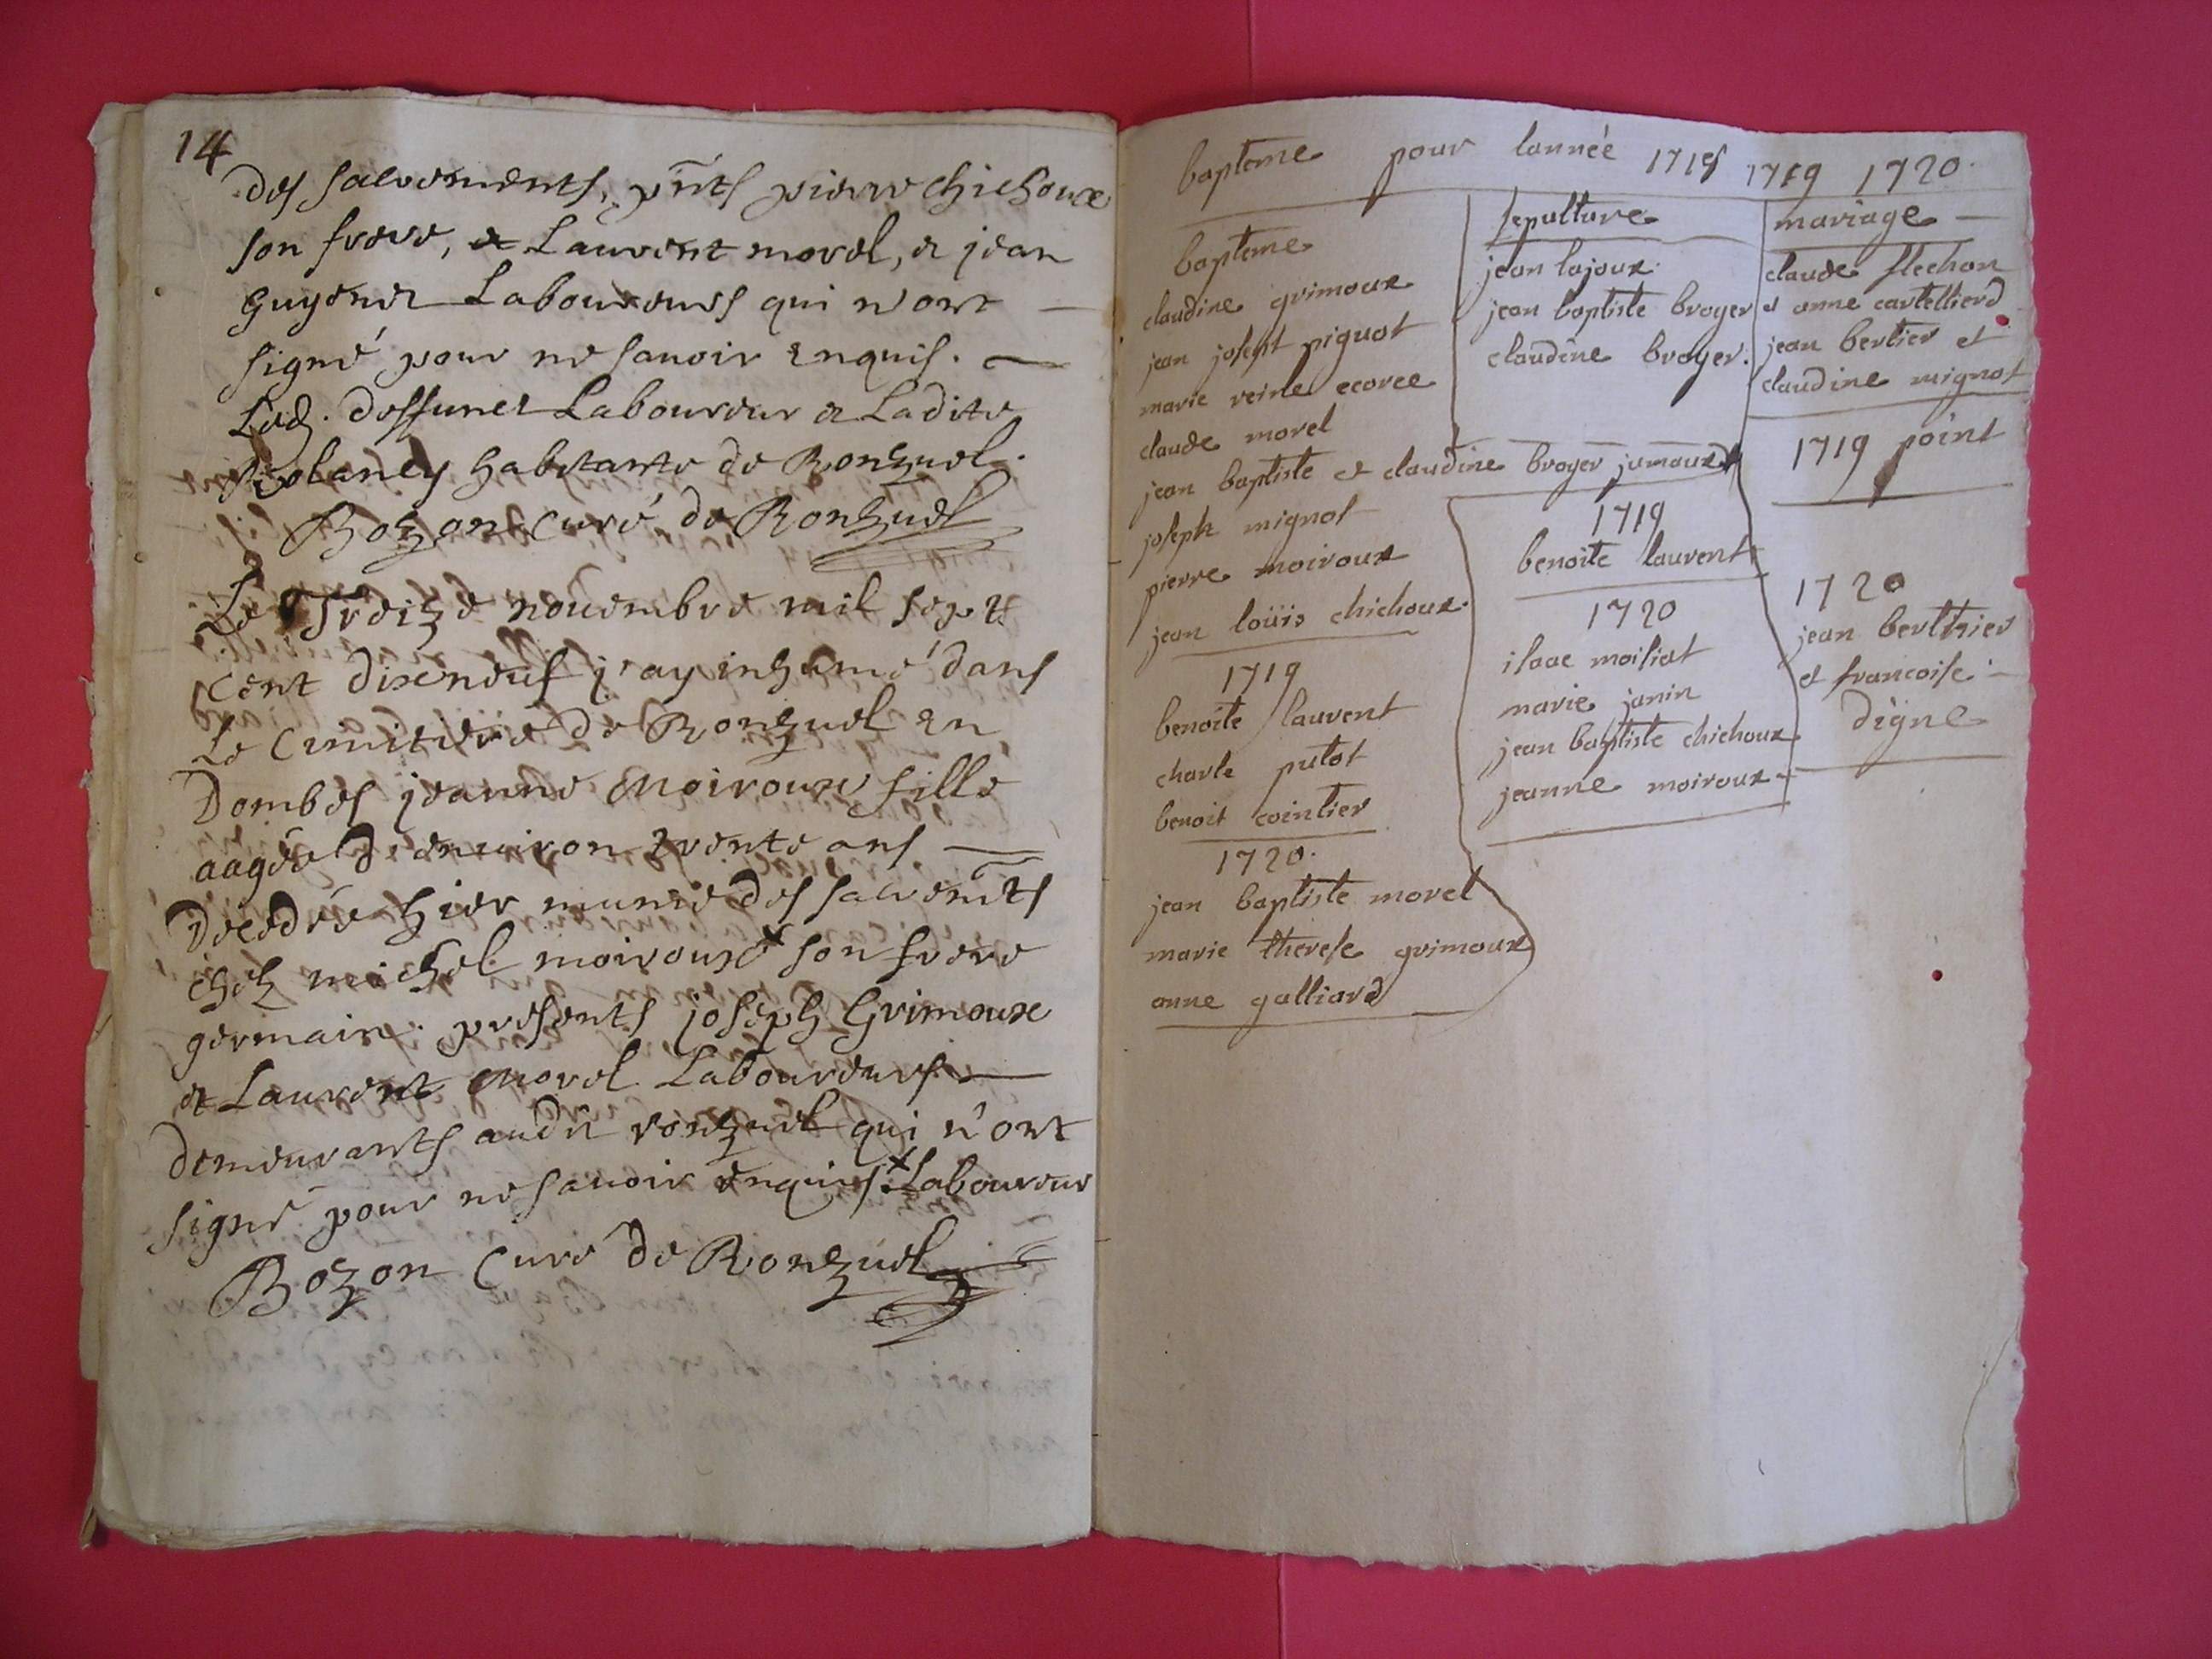 14
des sacrements, pnts pierre chichoux
son frere, et Laurent morel, et jean
guyenet Laboureurs qui n'ont
signé pour ne savoir enquis.
Led. deffunct Laboureur et Ladite
habitante de Ronzuel.
Bozon curé de Ronzuel
Le Treize nouembre mil sept
cent dixneuf j'ay inhumé dans
Le Cimitiere de Ronzuel en
Dombes jeanne Moiroux fille
aagée d'enuiron trente ans
Decedée hier munie des sacremts
chez michel moiroux x son frere
germain. presents joseph Grimoux
et Laurent Morel Laboureurs
demeurants audit ronzuel qui n'ont
signé pour ne sauoir enquis. x Laboureur
Bozon Curé de Ronzuel
bapteme pour lannée 1718 1719 1720.
bapteme
claudine grimoux
jean joseph piguot
marie reine ecorce
claude morel
jean baptiste et claudine broyer jumaux
joseph mignot
pierre moiroux
jean loüis chichoux.
1719
benoite laurent
charle putot
benoit cointier
1720.
jean baptiste morel
marie therese grimoux
anne galliard
sepulture
jean lajoux.
jean baptiste broyer
claudine broyer.
1719
benoite laurent
1720
isaac moisiat
marie janin
jean baptiste chichoux
jeanne moiroux
mariage
claude flechon
et anne cartellierd
jean bertier et
claudine mignot
1719 point
1720
jean berthier
et francoise
digne